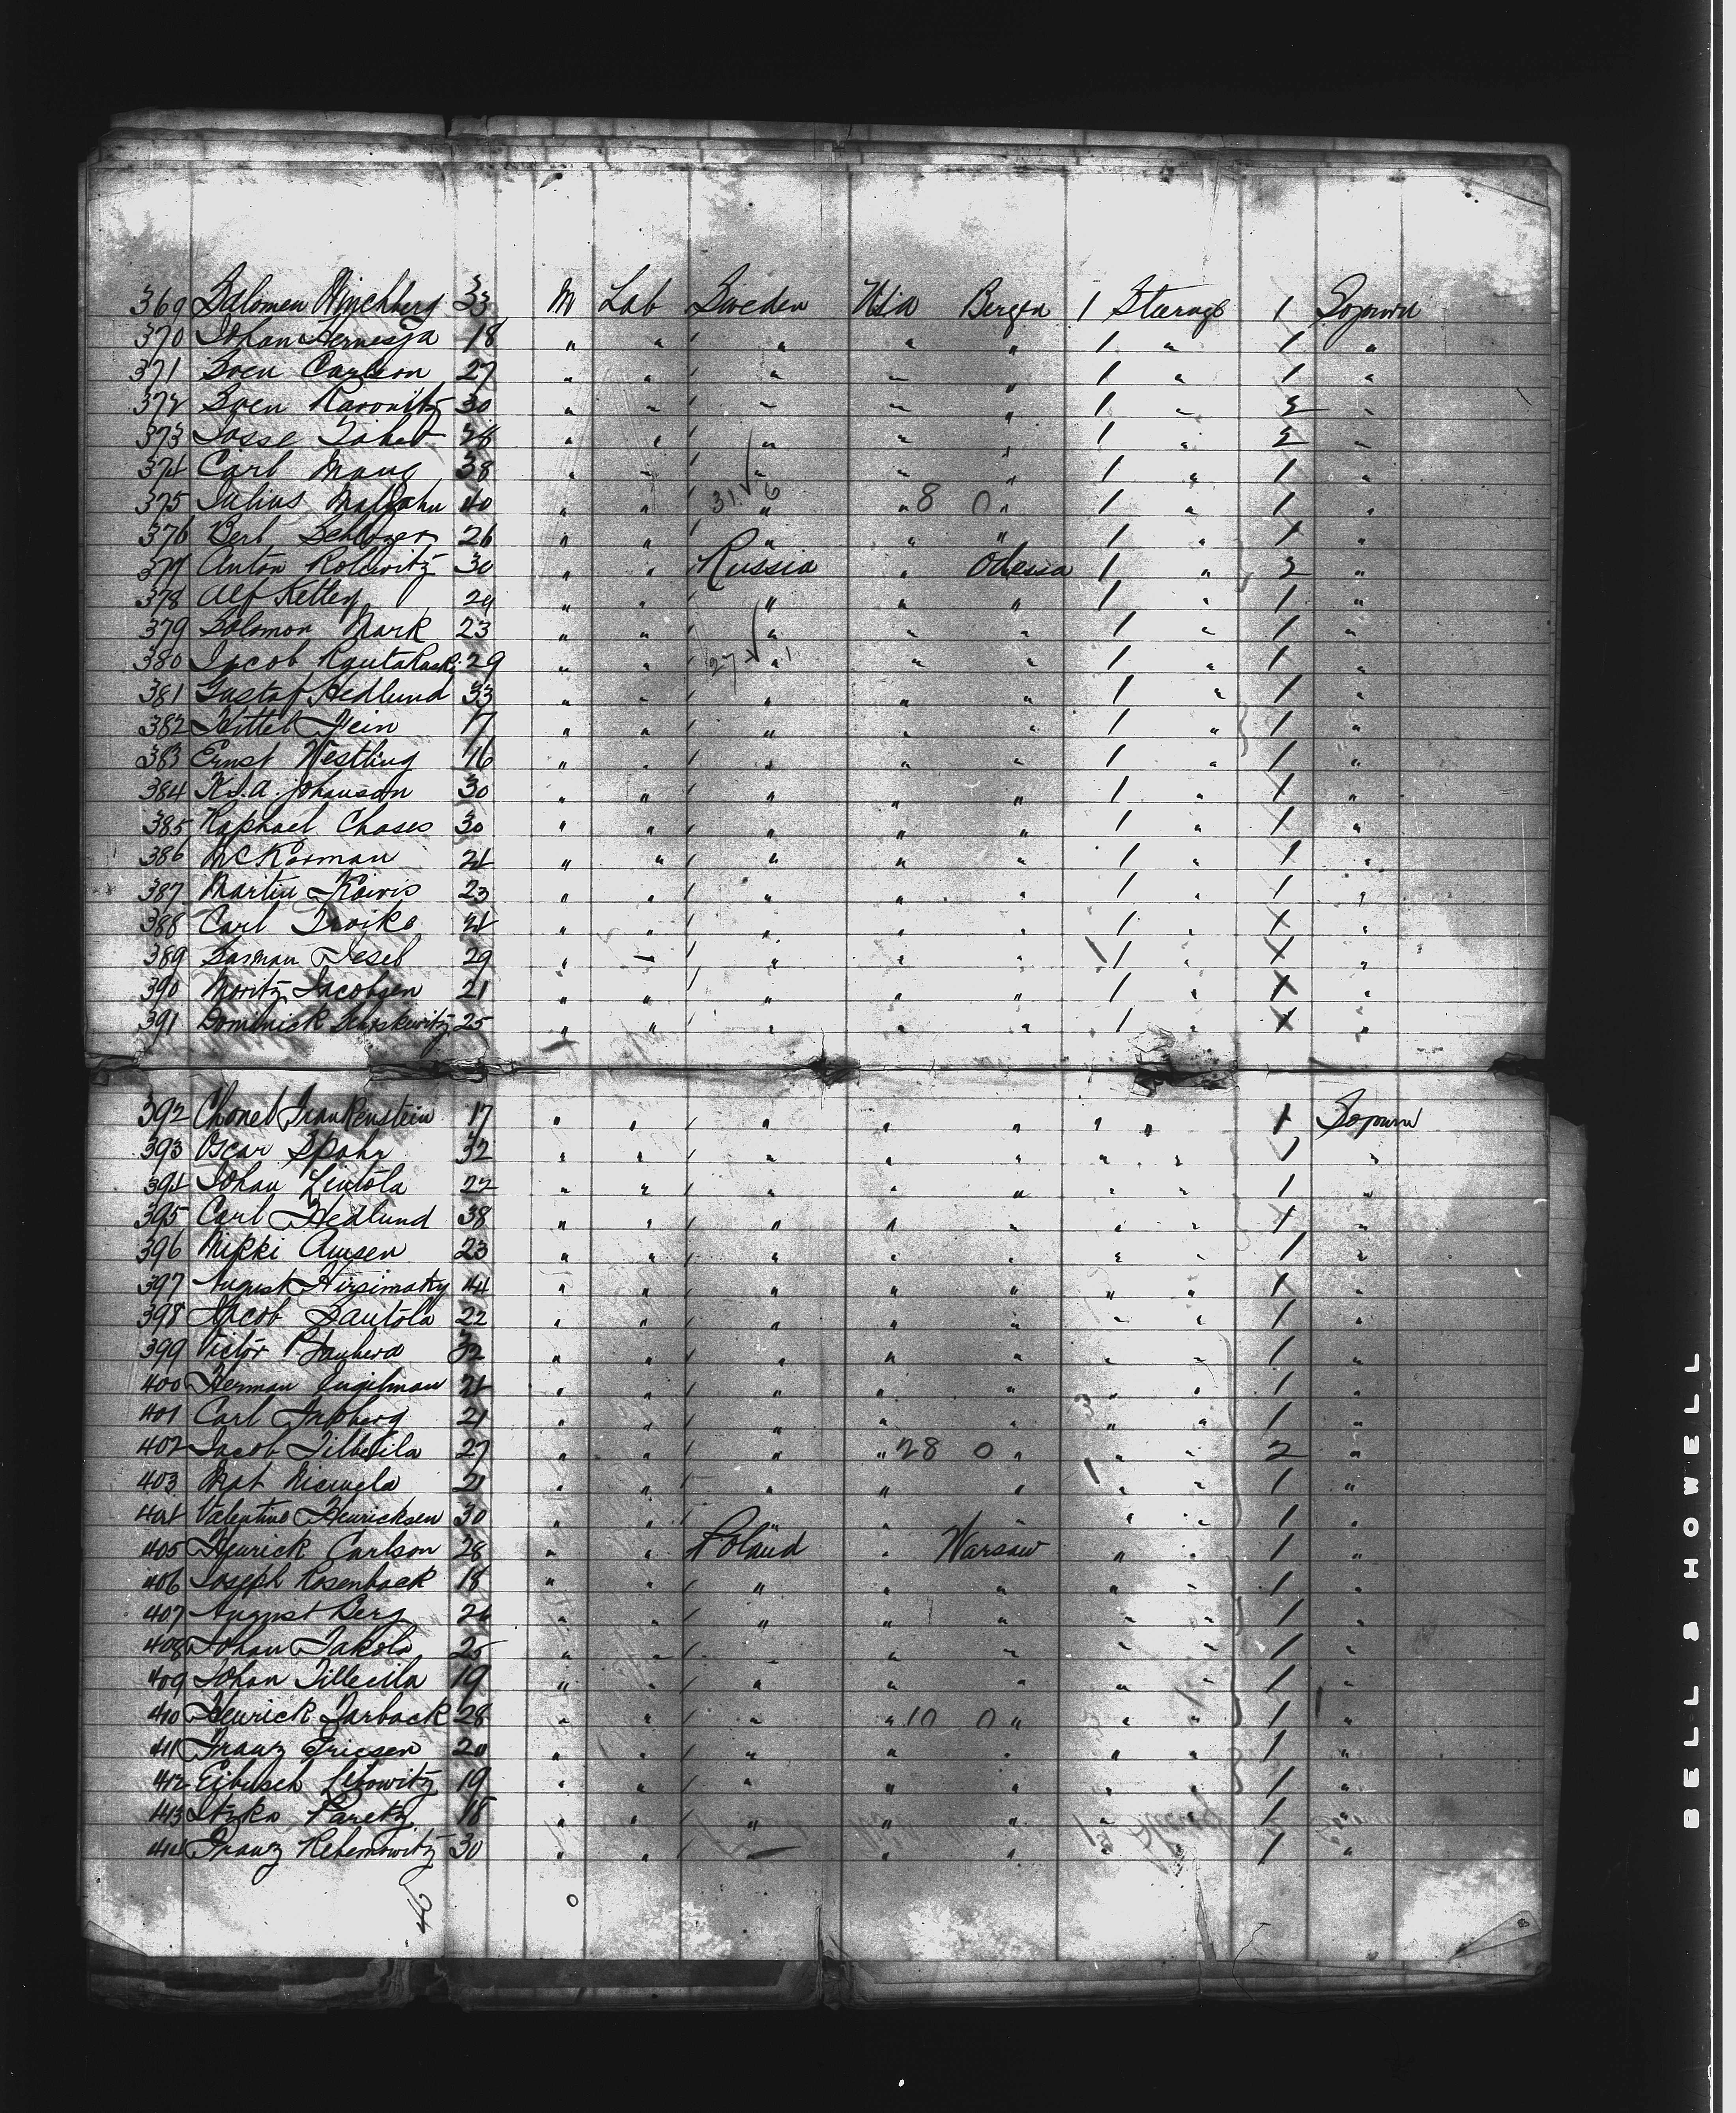 369 Salomen Hinchberg 33 M Lab Sweden USA Bergen 1 Steerage 1 Sojourn
370 Johan Hernesja 18 " " " " " 1 " 1 "
371 Sven Carlson 27 " " " " " 1 " 1 "
372 Sven Karowitz 30 " " " " " 1 " 2 "
373 Josse 28 " " " " " 1 " 2 "
374 Carl Mang 38 " " " " " 1 " 1 "
375 Julius 40 " " 31 6 " " 8 0 " 1 " 1 "
376 Berl Schlozer 26 " " " " " 1 " 1 "
377 Anton Rolewitz 30 " " Russia " Odessa 1 " 2 "
378 Alf Ketley 29 " " " " " 1 " 1 "
379 Solomon Mark 23 " " " " " 1 " 1 "
380 Jacob 29 " " 27 " 1 " " 1 " 1 "
381 Gustaf Hedlund 33 " " " " " 1 " 1 "
382 Kittel Fein 17 " " " " " 1 " 1 "
383 Ernst Westling 16 " " " " " 1 " 1 "
384 K.J.A. Johanson 30 " " " " " 1 " 1 "
385 Raphael Chases 30 " " " " " 1 " 1 "
386 McKorman 21 " " " " " 1 " 1 "
387 Martin Koivis 23 " " " " " 1 " 1 "
388 Carl Troike 21 " " " " " 1 " 1 "
389 Sasman Jeseb 29 " " " " " 1 " 1 "
390 Moritz Jacobsen 21 " " " " " 1 " 1 "
391 Dominick 25 " " " " " 1 " 1 "
392 Chonel Frankenstein 17 " " " " " " " 1 Sojourn
393 Oscar Spohr 32 " " " " " " " 1 "
394 Johan Lentola 22 " " " " " " " 1 "
395 Carl Hedlund 38 " " " " " " " 1 "
396 Mikki Amsen 23 " " " " " " " 1 "
397 August Hirsimaky 44 " " " " " " " 1 "
398 Jacob Sautola 22 " " " " " " " 1 "
399 Victor 32 " " " " " " " 1 "
400 Herman Engilman 21 " " " " " " " 1 "
401 Carl 21 " " " " " " " 1 "
402 Jacob 27 " " " " 28 0 " " " 2 "
403 Mat 21 " " " " " " " 1 "
404 Valentine Henricksen 30 " " " " " " " 1 "
405 Henrick Carlson 28 " " Poland " Warsaw " " 1 "
406 Joseph Rosenback 18 " " " " " " " 1 "
407 August Berg 26 " " " " " " " 1 "
408 Johan Jakola 25 " " " " " " " 1 "
409 Johan Tilleila 19 " " " " " " " 1 "
410 Henrick Jarback 28 " " " " 10 0 " " " 1 "
411 Franz Ericsen 20 " " " " " " " 1 "
412 Eibusch Lebowitz 19 " " " " " " " 1 "
413 Itzko Paretz 18 " " " " " " " 1 "
414 Franz Rehemowitz 30 " " " " " " " 1 "
BELL & HOWELL